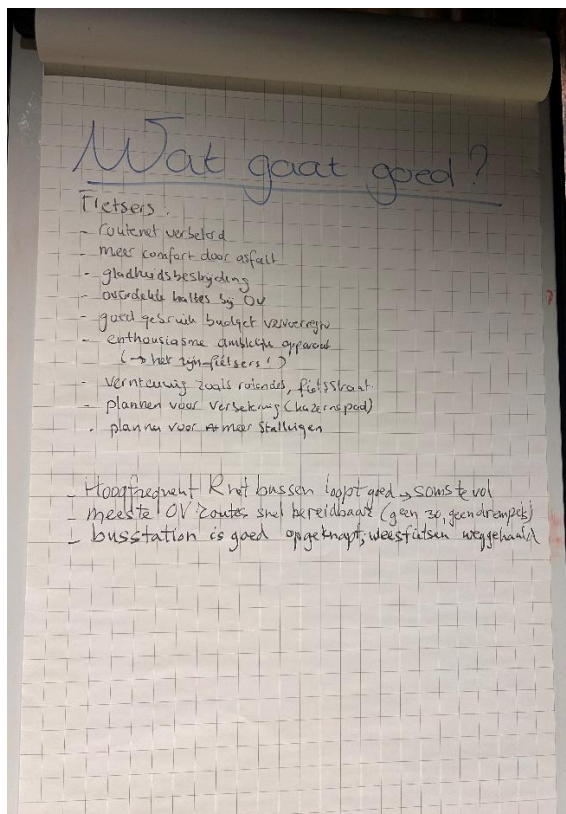 Wat gaat goed?
Fietsers:
- routenet verbeterd
- meer comfort door asfalt
- gladheidsbestrijding
- overdekte haltes bij OV
- goed gebruik budget vervoerregio
- enthousiasme ambtelijk apparaat
(→ het zijn fietsers!)
- vernieuwing zoals rotondes, fietsstraat.
- plannen voor verbetering (kazernepad)
- plannen voor meer stallingen
- Hoogfrequent Rnet bussen loopt goed → soms te vol
- meeste OV routes snel bereidbaar (geen 30, geen drempels)
- busstation is goed opgeknapt, weesfietsen weggehaald